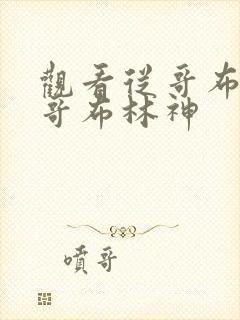 觀看從哥布
哥布林神
噴哥